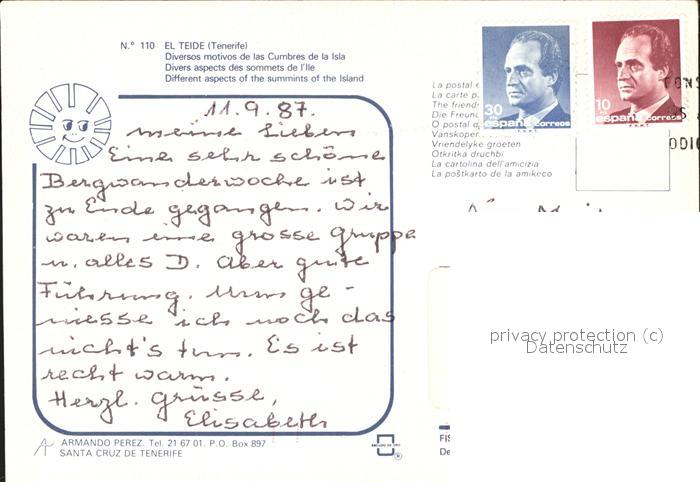 N.° 110 EL TEIDE (Tenerife)
Diversos motivos de las Cumbres de la Isla
Divers aspects des sommets de l'Ile
Different aspects of the summints of the Island
11.9.87.
Meine Lieben
Eine sehr schöne
Bergwanderwoche ist
zu Ende gegangen. Wir
waren eine grosse Gruppe
u. alles D. Aber gute
Führung. Nun ge-
niesse ich noch das
nicht's tun. Es ist
recht warm.
Herzl. Grüsse,
Elisabeth
ARMANDO PEREZ. Tel. 21 67 01. P.O. Box 897
SANTA CRUZ DE TENERIFE
30
españa correos
10
españa correos
La postal
La carte p
The friend
Die Freun
O postal
Vanskoper
Vriendelyke groeten
Otkritka druchbi
La cartolina dell'amicizia
La poŝtkarto de la amikeco
privacy protection (c)
Datenschutz
FIS
De